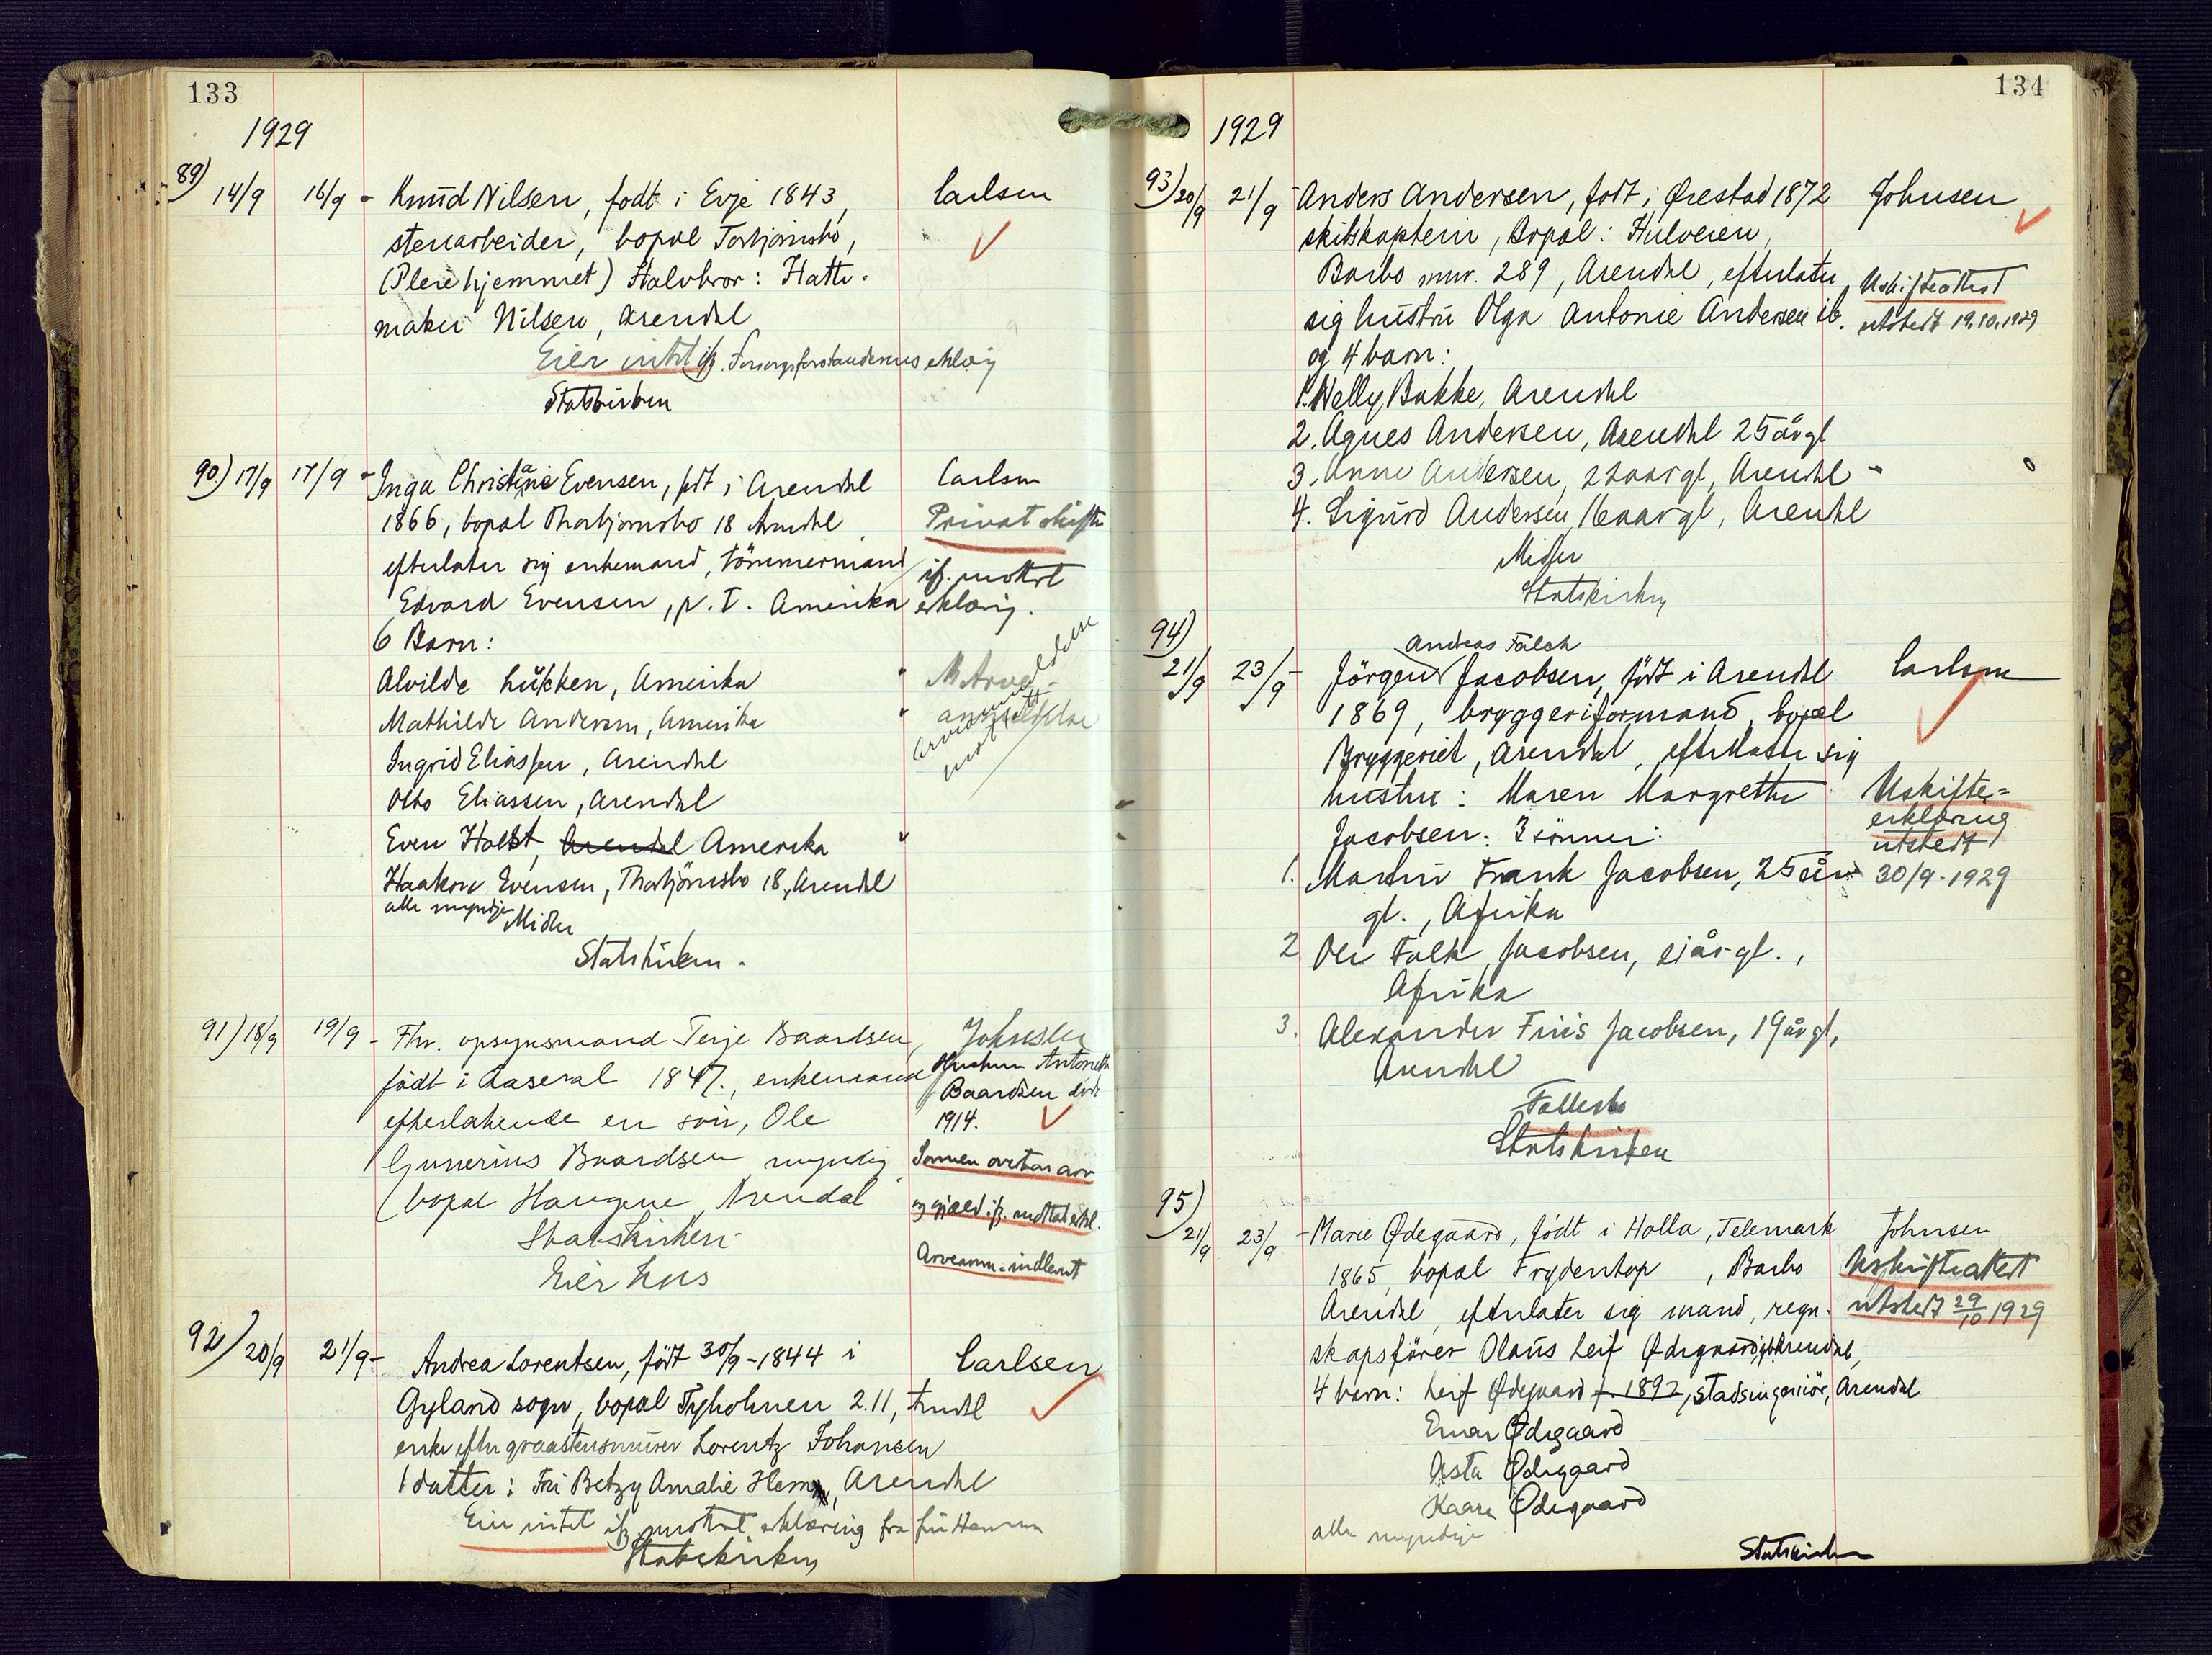 133
1929
89) 14/9 16/9 - Knud Nilsen, født i Evje 1843, Carlsen
stenarbeider, bopæl Torbjørnsbo,
(Pleiehjemmet) Halvbror: Hatte-
maker Nilsen, Arendal
Eier intet ifg. Forsorgsforstanderens erklæring
Statskirken
90) 17/9 17/9 - Inga Christiane Evensen, født i Arendal Carlsen
1866, bopæl Thorbjørnsbo 18 Arendal Privat skifte
efterlater sig enkemand, tömmermand ifg. mottat
Edvard Evensen, p. T. Amerika erklæring.
6 Barn:
Alvilde Lükken, Amerika
Mathilde Andersen, Amerika
Ingrid Eliassen, Arendal
Otto Eliassen, Arendal
Even Holst, Arendal Amerika
Haakon Evensen, Thorbjörnsbo 18, Arendal
alle myndige Midler
Statskirken.
91) 18/9 19/9 - Fhv. opsynsmand Terje Baardsen, Johnsen
født i Aaseral 1847, enkemand Hustru Antonette
Baardsen död
efterlatende en sön, Ole 1914.
Gunerius Baardsen myndig, Sönnen overtar arv
bopæl Haugene, Arendal og gjæld ifg. mottat erkl.
Statskirken
Arveanm. indlevert
Eier hus
92) 20/9 21/9 - Andrea Lorentsen, født 30/9-1844 i Carlsen
Gyland sogn, bopæl Tyholmen 2.11, Arendal
enke efter graastensmurer Lorentz Johansen
1 datter: Fru Betzy Amalie Hem, Arendal
Eier intet ifg. mottat erklæring fra fru
Statskirken
134
1929
93) 20/9 21/9 - Anders Andersen, født i Örestad 1872 Johnsen
skibskaptein, Bopæl: Hulveien,
Barbo mnr. 289, Arendal, efterlater Uskifteattest
sig hustru Olga Antonie Andersen ib. utstedt 19.10.1929
og 4 barn:
1. Nelly Bakke, Arendal
2. Agnes Andersen, Arendal 25 år gl
3. Anne Andersen, 22 aar gl, Arendal
4. Sigurd Andersen, 16 aar gl, Arendal
Midler
Statskirken
94) Andreas Falch
21/9 23/9 - Jörgen Jacobsen, født i Arendal Carlsen
1869, bryggeriformand, bopæl
Bryggeriet, Arendal, efterlater sig
hustru: Maren Margrethe Uskifte-
erklæring
Jacobsen. 3 sönner: utstedt
1. Martin Frank Jacobsen, 25 år 30/9-1929
gl., Afrika
2 Ole Falk Jacobsen, 21 år gl.,
Afrika
3. Alexander Friis Jacobsen, 19 år gl,
Arendal
Fællesbo
Statskirken
95)
21/9 23/9 - Marie Ødegaard, født i Holla, Telemark Johnsen
1865, bopæl Frydentop, Barbo Uskifteattest
Arendal, efterlater sig mand, regn- utstedt 29/10 1929
skapsfører Olaus Leif Ødegaard, Arendal,
4 barn: Leif Ødegaard f. 1892, stadsingeniör, Arendal
Einar Ødegaard
Asta Ødegaard
Kaare Ødegaard
alle myndige
Statskirken